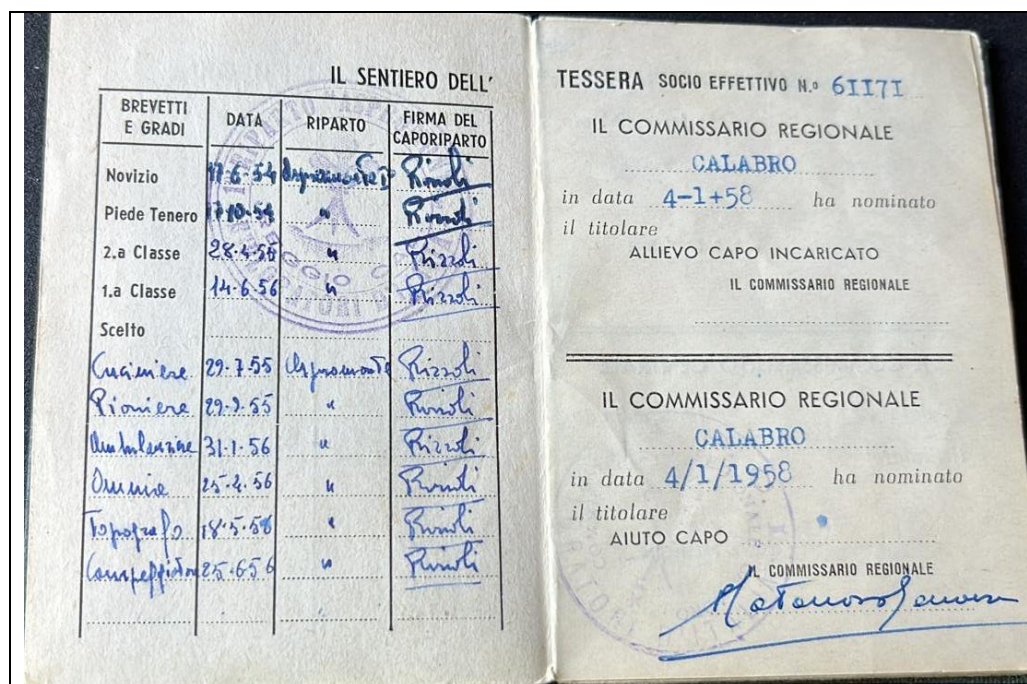 IL SENTIERO DELL'
BREVETTI E GRADI DATA RIPARTO FIRMA DEL CAPORIPARTO
Novizio 17-6-54 Aspromonte Rizzoli
Piede Tenero 17-10-54 " Rizzoli
2.a Classe 28-4-55 " Rizzoli
1.a Classe 14-6-56 " Rizzoli
Scelto
Cuciniere 29-7-55 Aspromonte Rizzoli
Pioniere 29-9-55 " Rizzoli
Ambulanziere 31-1-56 " Rizzoli
25-4-56 " Rizzoli
Topografo 18-5-56 " Rizzoli
Campeggiatore 25-6-56 " Rizzoli
REGGIO
TESSERA SOCIO EFFETTIVO N.º 61171
IL COMMISSARIO REGIONALE
CALABRO
in data 4-1+58 ha nominato
il titolare
ALLIEVO CAPO INCARICATO
IL COMMISSARIO REGIONALE
IL COMMISSARIO REGIONALE
CALABRO
in data 4/1/1958 ha nominato
il titolare
AIUTO CAPO
IL COMMISSARIO REGIONALE